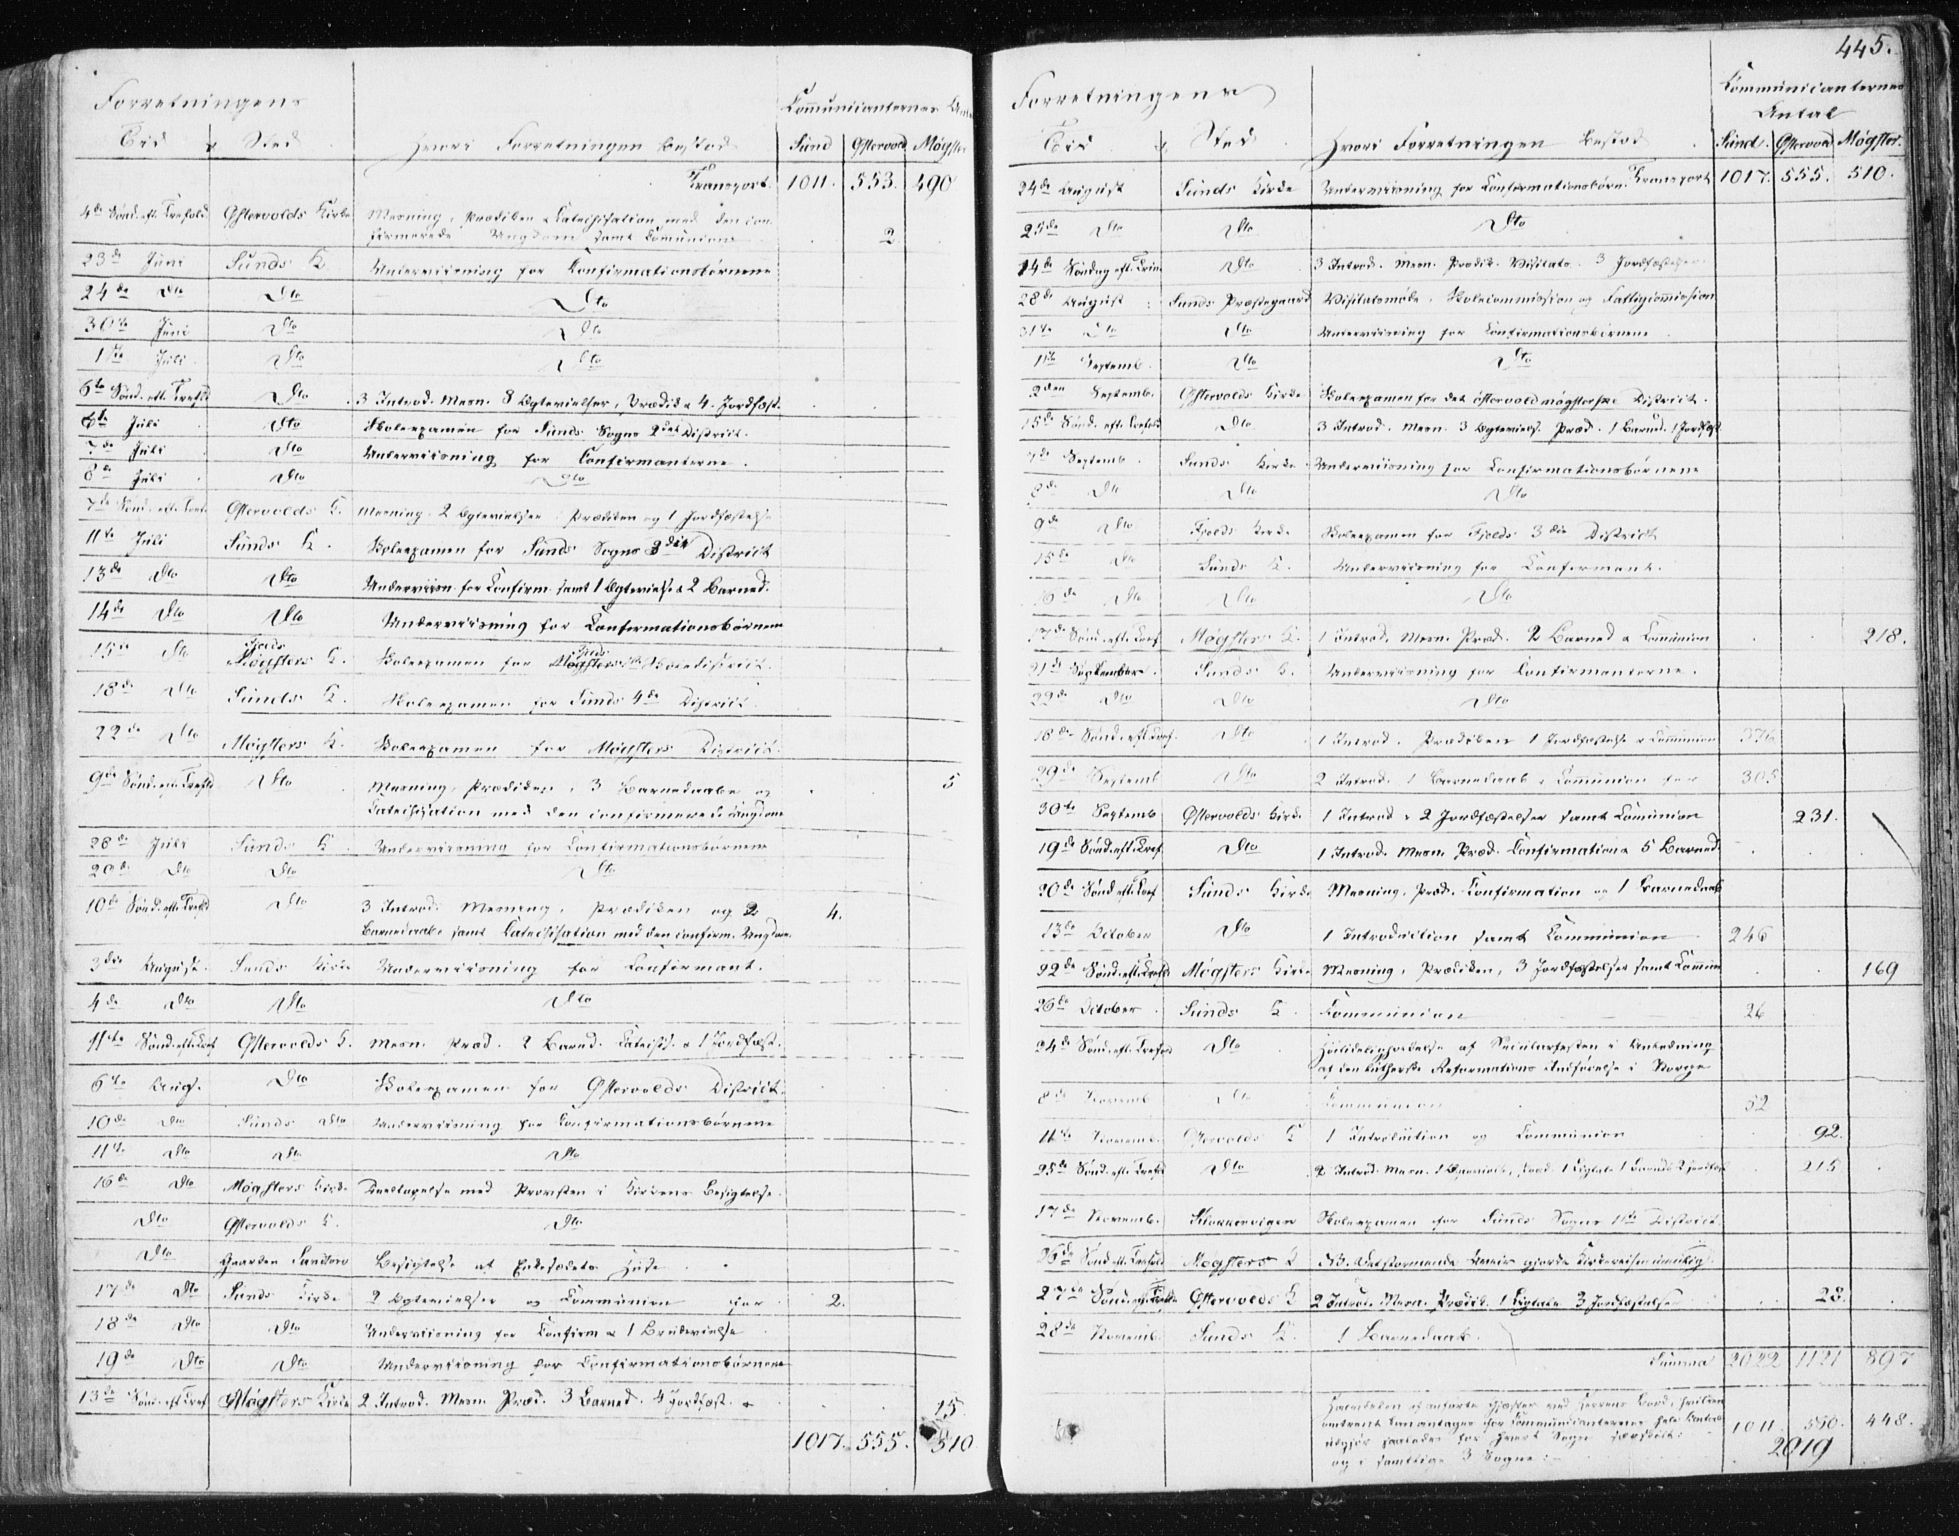 Forretningens
Communicanternes
Tid & Sted. Hvori Forretningen bestod Sund Østervold Møgster
Transport. 1011. 553. 490
4de Sønd. eft. Trefold. Østervolds Kirke Messning, Prædiken & Catechisation med den con-
firmerede Ungdom samt Communion 2.
23de Juni Sunds K. Underviisning for Confirmationsbørnene
24de Dto Dto Dto
30te Juni Dto Dto
1ste Juli Dto Dto
6te Sønd. eft. Trefold Dto 3 Introd. Messn. 8 Ægtevielser, Prædik & 4. Jordfæst.
6te Juli Dto Skoleexamen for Sunds Sogns 2det District.
7de Juli Dto Underviisning for Confirmanterne.
8de Juli Dto Dto
7de Sønd. eft. Østervolds K. Messning. 2 Ægtevielser Prædiken og 1 Jordfæstelse
11te Juli Sunds K. Skoleexamen for Sunds Sogns 3die District
13de Dto Dto Underviisn. for Confirm. samt 1 Ægtevielse & 2 Barned.
14de Dto Dto Underviisning for Confirmationsbørnene
15de Dto Møgsters K. Skoleexamen for Skoledistrict.
18de Dto Sunds K. Skoleexamen for Sunds 4de District.
22de Dto Møgsters K. Skoleexamen for Møgsters District.
9de Sønd. eft. Trefold Dto Messning, Prædiken, 3 Barnedaabe og 5
Catechisation med den confirmerede Ungdom
28de Juli Sunds K. Underviisning for Confirmationsbørnene
29de Dto Dto Dto
10de Sønd. eft. Trefold Dto 3 Introd. Messning, Prædiken og 2 4.
Barnedaab. samt Catechisation med den confirm. Ungdom.
3die August. Sunds Kirke Underviisning for Confirmant.
4de Dto Dto Dto
11te Sønd. eft. Tref Østervolds K. Messn. Præd. 2 Barned. Catechis. & 1 Jordfæst.
6te Aug. Dto Skoleexamen for Østervolds District.
10de Dto Sunds Dto Underviisning for Confirmationsbørnene
11te Dto Dto Dto
16de Dto Møgsters Kirke Deeltagelse med Provsten i Kirkens Besigtelse.
Dto Østervolds K. Dto
Dto Gaarden Besigtelse af Enkesædets Huse.
17de Dto Sunds Kirke 2 Ægtevielser og Communion for 2.
18de Dto Dto Underviisning for Confirm & 1 Brudevielse
19de Dto Dto Underviisning for Confirmationsbørnene
13de Sønd. eft. Tref. Møgsters Kirke 2 Introd. Messn. Præd. 3 Barned. 4 Jordfæst. & 15
1017. 555. 510
445.
Forretningens Communicanternes
Antal
Tid & Sted. Hvori Forretningen bestod. Sund. Østervold Møgster.
24de August Sunds Kirke Underviisning for Confirmationsbørn. Transport 1017. 555. 510.
25de Dto Dto Dto
14de Søndag eft. Trin Dto 3 Introd. Messn. Prædik. Visitats. 3 Jordfæstelser.
28de August Sunds Præstegaard Visitatsmøde, Skolecommission og Fattigcommission
31te Dto Dto Underviisning for Confirmationsbørnene
1ste Septemb. Dto Dto
2den Septemb. Østervolds Kirke Skoleexamen for det østervold møgsterske District.
15de Sønd. eft. Trefold Dto 3 Introd. Messn. 3 Ægteviels. Præd. 1 Barned. 1 Jordfæst
7de Septemb. Sunds Kirke Underviisning for Confirmationsbørnene
8de Dto Dto Dto
9de Dto Fjelds Kirke Skoleexamen for Fjelds 3die District
15de Dto Sunds K. Underviisning for Confirmant.
16de Dto Dto Dto
17de Sønd. eft. Tref. Møgsters K. 1 Introd. Messn. Præd. 2 Barned & Communion 218.
21de September. Sunds K. Underviisning for Confirmanterne.
22de Dto Dto Dto
18de Sønd. eft. Tref. Dto 1 Introd. Prædiken 1 Jordfæstelse & Communion
29de Septemb Dto 2 Introd. 1 Barnedaab & Communion for 305
30te Septemb Østervolds Kirke 1 Introd & 2 Jordfæstelser samt Communion 231.
19de Sønd. eft. Tref. Dto 1 Introd. Messn. Præd. Confirmation & 5 Barned.
20de Sønd. eft. Tref Sunds Kirke Messning, Præd. Confirmation og 1 Barnedaab
13de October Dto 1 Introduction samt Communion 246
22de Sønd. eft. Trefold Møgsters Kirke Messning, Prædiken, 3 Jordfæstelser samt Commun 169
26de October. Sunds K. Communion 26
24de Sønd. eft. Trefold Dto Høitideligholdelse af Secularfesten i Anledning
af den lutherske Reformations Indførelse i Norge
8de Novemb. Dto Communion 52
11te Novemb. Østervolds K 1 Introduction og Communion 92.
25de Sønd. eft. Trefold Dto 2 Introd. Messn. 215
17de Novemb. Klokkervigen Skoleexamen for Sunds Sogns 1ste District.
26de Sønd. eft. Trefold Møgsters K NB. Veir gjorde Kirkereisen umulig.
27de Sønd. eft. Trefold Østervolds K 2 Introd. Messn. Prædik. 3 Jordfæstelser 28.
28de Novemb. Sunds K. 1 Barnedaab.
Summa 2022 1121 897
Halvdelen anførte Gjæster ved Herrens Bord, hvilken
omtrent kan antages for Communicanternes hele Antal
udgjør saaledes for hvert Sogn særskilt: 1011. 560. 448.
og i samtlige 3 Sogne: 2019